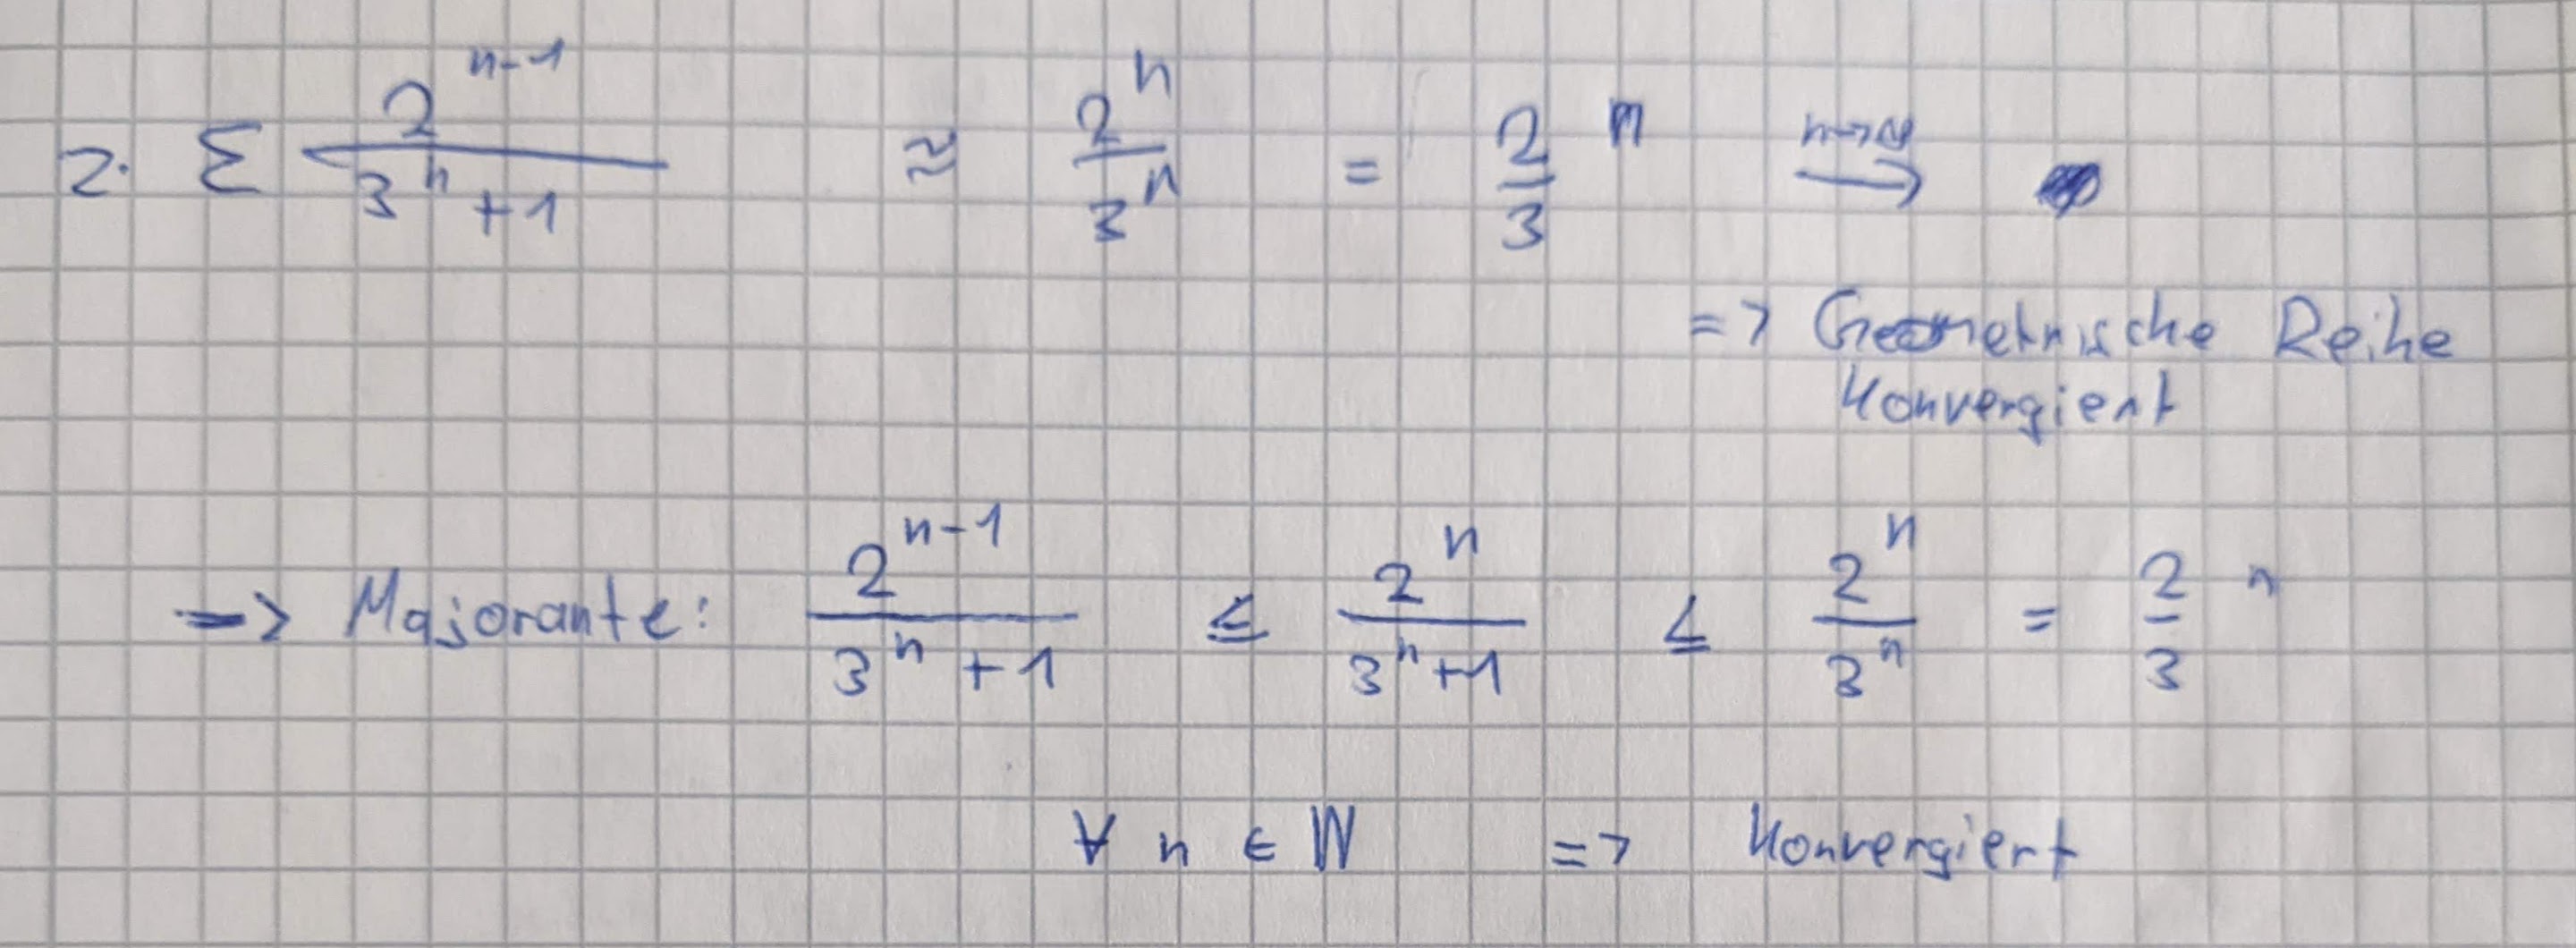 2. Σ 2^(n-1) / (3^n + 1) ≈ 2^n / 3^n = 2/3 ^n n→∞ ⟶
=> Geometrische Reihe
Konvergiert
=> Majorante: 2^(n-1) / (3^n + 1) ≤ 2^n / (3^n + 1) ≤ 2^n / 3^n = 2/3 ^n
∀ n ∈ ℕ => Konvergiert